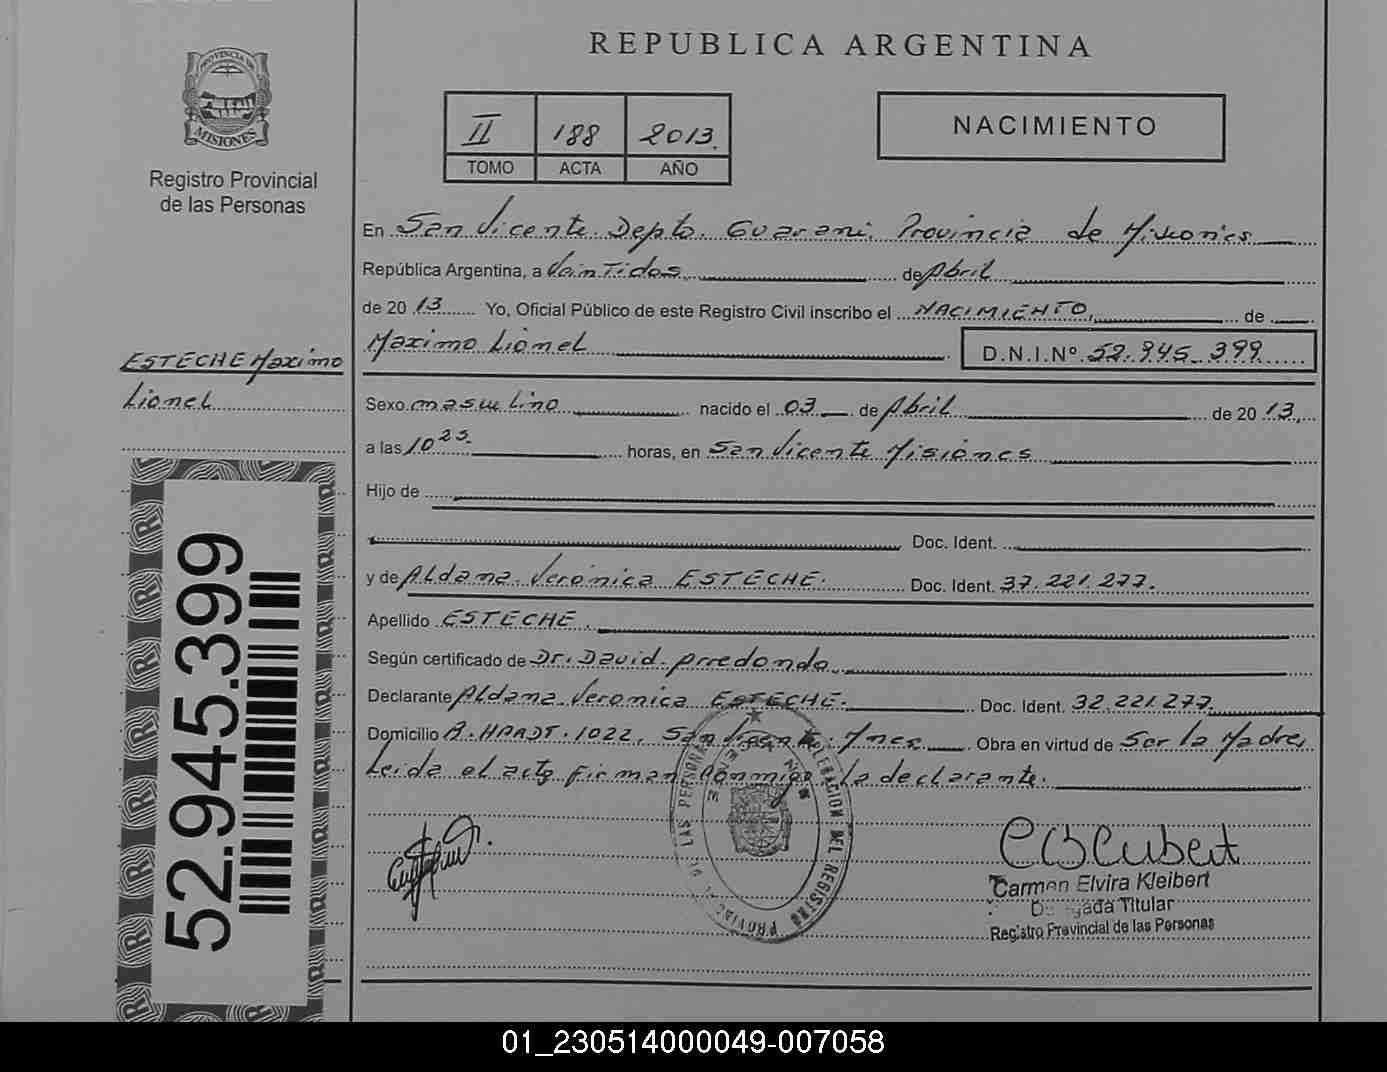 PROVINCIA DE
MISIONES
Registro Provincial
de las Personas
ESTECHE Maximo
Lionel
52.945.399
REPUBLICA ARGENTINA
II 188 2013.
TOMO ACTA AÑO
NACIMIENTO
En San Vicente. Depto. Guarani. Provincia de Misiones
República Argentina, a Vaintidos de Abril
de 20 13 Yo, Oficial Público de este Registro Civil inscribo el NACIMIENTO, de
Maximo Lionel D.N.I.Nº 52.945.399
Sexo masculino nacido el 03 de Abril de 20 13,
a las 10 25. horas, en San Vicente Misiones
Hijo de
Doc. Ident.
y de Aldana Verónica ESTECHE. Doc. Ident. 37.221.277.
Apellido ESTECHE.
Según certificado de Dr. David Arredondo.
Declarante Aldana Veronica ESTECHE. Doc. Ident. 32.221.277.
Domicilio A. HARDT. 1022, San Vicente. Mnes Obra en virtud de Ser la Madre,
Leida el acta firman conmigo la declarante.
DELEGACION DEL REGISTRO PROVINCIAL DE LAS PERSONAS
Carmen Elvira Kleibert
Delegada Titular
Registro Provincial de las Personas
01_230514000049-007058